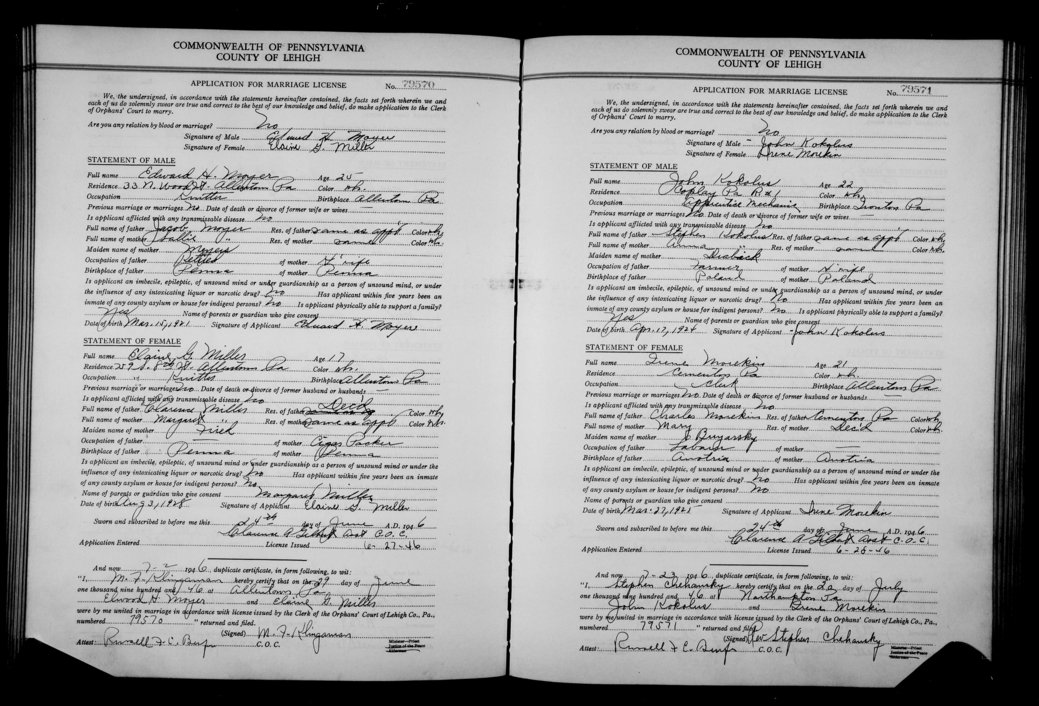 COMMONWEALTH OF PENNSYLVANIA
COUNTY OF LEHIGH
APPLICATION FOR MARRIAGE LICENSE No. 79570
We, the undersigned, in accordance with the statements hereinafter contained, the facts set forth wherein we and
each of us do solemnly swear are true and correct to the best of our knowledge and belief, do make application to the Clerk
of Orphans' Court to marry.
Are you any relation by blood or marriage? No
Signature of Male Edward H. Moyer
Signature of Female Elaine G. Miller
STATEMENT OF MALE
Full name Edward H. Moyer Age 25
Residence 33 N. Wood St. Allentown Pa Color wh.
Occupation Knitter Birthplace Allentown Pa
Previous marriage or marriages No. Date of death or divorce of former wife or wives
Is applicant afflicted with any transmissible disease no
Full name of father Jacob Moyer Res. of father same as appt Color wh.
Full name of mother Sallie " Res. of mother same Color wh.
Maiden name of mother Moyer
Occupation of father Retired of mother H'wife
Birthplace of father Penna of mother Penna
Is applicant an imbecile, epileptic, of unsound mind or under guardianship as a person of unsound mind, or under
the influence of any intoxicating liquor or narcotic drug? no Has applicant within five years been an
inmate of any county asylum or house for indigent persons? no Is applicant physically able to support a family?
Yes Name of parents or guardian who give consent
Date of birth Mar. 15, 1921 Signature of Applicant Edward H. Moyer
STATEMENT OF FEMALE
Full name Elaine G Miller Age 17
Residence 257 N. 8th St. Allentown Pa Color wh.
Occupation Knitter Birthplace Allentown Pa
Previous marriage or marriages no. Date of death or divorce of former husband or husbands
Is applicant afflicted with any transmissible disease no
Full name of father Clarence Miller Res. of father Decd Color wh.
Full name of mother Margaret " Res. of mother same as appt Color wh.
Maiden name of mother Fried
Occupation of father of mother Cigar Packer
Birthplace of father Penna of mother Penna
Is applicant an imbecile, epileptic, of unsound mind or under guardianship as a person of unsound mind or under the
influence of any intoxicating liquor or narcotic drug? no Has applicant within five years been an inmate
of any county asylum or house for indigent persons? no
Name of parents or guardian who give consent Margaret Miller
Date of birth Aug 3, 1928 Signature of Applicant Elaine G. Miller
Sworn and subscribed to before me this 24th day of June A.D. 1946
Clarence A Asst C.O.C.
Application Entered License Issued 6-27-46
And now 7-2 1946, duplicate certificate, in form following, to wit:
"I, M. F. Klingaman hereby certify that on the 29 day of June
one thousand nine hundred and 46 at Allentown Pa
Edward H. Moyer and Elaine G. Miller
were by me united in marriage in accordance with license issued by the Clerk of the Orphans' Court of Lehigh Co., Pa.,
numbered 79570 " returned and filed.
(Signed) M. F. Klingaman
Attest: Russell F. C. C.O.C.
Minister—Priest
Justice of the Peace
Alderman
COMMONWEALTH OF PENNSYLVANIA
COUNTY OF LEHIGH
APPLICATION FOR MARRIAGE LICENSE No. 79571
We, the undersigned, in accordance with the statements hereinafter contained, the facts set forth wherein we and
each of us do solemnly swear are true and correct to the best of our knowledge and belief, do make application to the Clerk
of Orphans' Court to marry.
Are you any relation by blood or marriage? no
Signature of Male John Kokolus
Signature of Female Irene Morekin
STATEMENT OF MALE
Full name John Kokolus Age 22
Residence Coplay Pa R#1 Color wh.
Occupation Apprentice Mechanic Birthplace Ironton Pa
Previous marriage or marriages no. Date of death or divorce of former wife or wives
Is applicant afflicted with any transmissible disease no
Full name of father Stephen Kokolus Res. of father same as appt Color wh.
Full name of mother Anna " Res. of mother same Color wh.
Maiden name of mother
Occupation of father Farmer of mother H'wife
Birthplace of father Poland of mother Poland
Is applicant an imbecile, epileptic, of unsound mind or under guardianship as a person of unsound mind, or under
the influence of any intoxicating liquor or narcotic drug? no Has applicant within five years been an
inmate of any county asylum or house for indigent persons? no Is applicant physically able to support a family?
Yes Name of parents or guardian who give consent
Date of birth Apr. 17, 1924 Signature of Applicant John Kokolus
STATEMENT OF FEMALE
Full name Irene Morekin Age 21
Residence Cementon Pa Color wh.
Occupation Clerk Birthplace Allentown Pa
Previous marriage or marriages no. Date of death or divorce of former husband or husbands
Is applicant afflicted with any transmissible disease no
Full name of father Charles Morekin Res. of father Cementon Pa Color wh.
Full name of mother Mary Res. of mother Dec'd Color wh.
Maiden name of mother
Occupation of father Laborer of mother
Birthplace of father Austria of mother Austria
Is applicant an imbecile, epileptic, of unsound mind or under guardianship as a person of unsound mind or under the
influence of any intoxicating liquor or narcotic drug? no Has applicant within five years been an inmate
of any county asylum or house for indigent persons? no
Name of parents or guardian who give consent
Date of birth Mar. 27, 1925 Signature of Applicant Irene Morekin
Sworn and subscribed to before me this 24th day of June A.D. 1946
Clarence A Asst C.O.C.
Application Entered License Issued 6-28-46
And now 7-23 1946, duplicate certificate, in form following, to wit:
"I, Stephen Chehansky hereby certify that on the 20 day of July
one thousand nine hundred and 46 at Northampton Pa
John Kokolus and Irene Morekin
were by me united in marriage in accordance with license issued by the Clerk of the Orphans' Court of Lehigh Co., Pa.,
numbered 79571 " returned and filed.
(Signed) Rev Stephen Chehansky
Attest: Russell F. C. C.O.C.
Minister—Priest
Justice of the Peace
Alderman